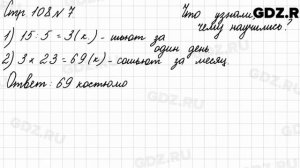 Стр. 108 № 7
Что узнали,
чему научились?
GDZ.RU
1) 15 : 5 = 3 (к.) - шьют за
один день
2) 3 × 23 = 69 (к) - сошьют за месяц.
Ответ: 69 костюмо